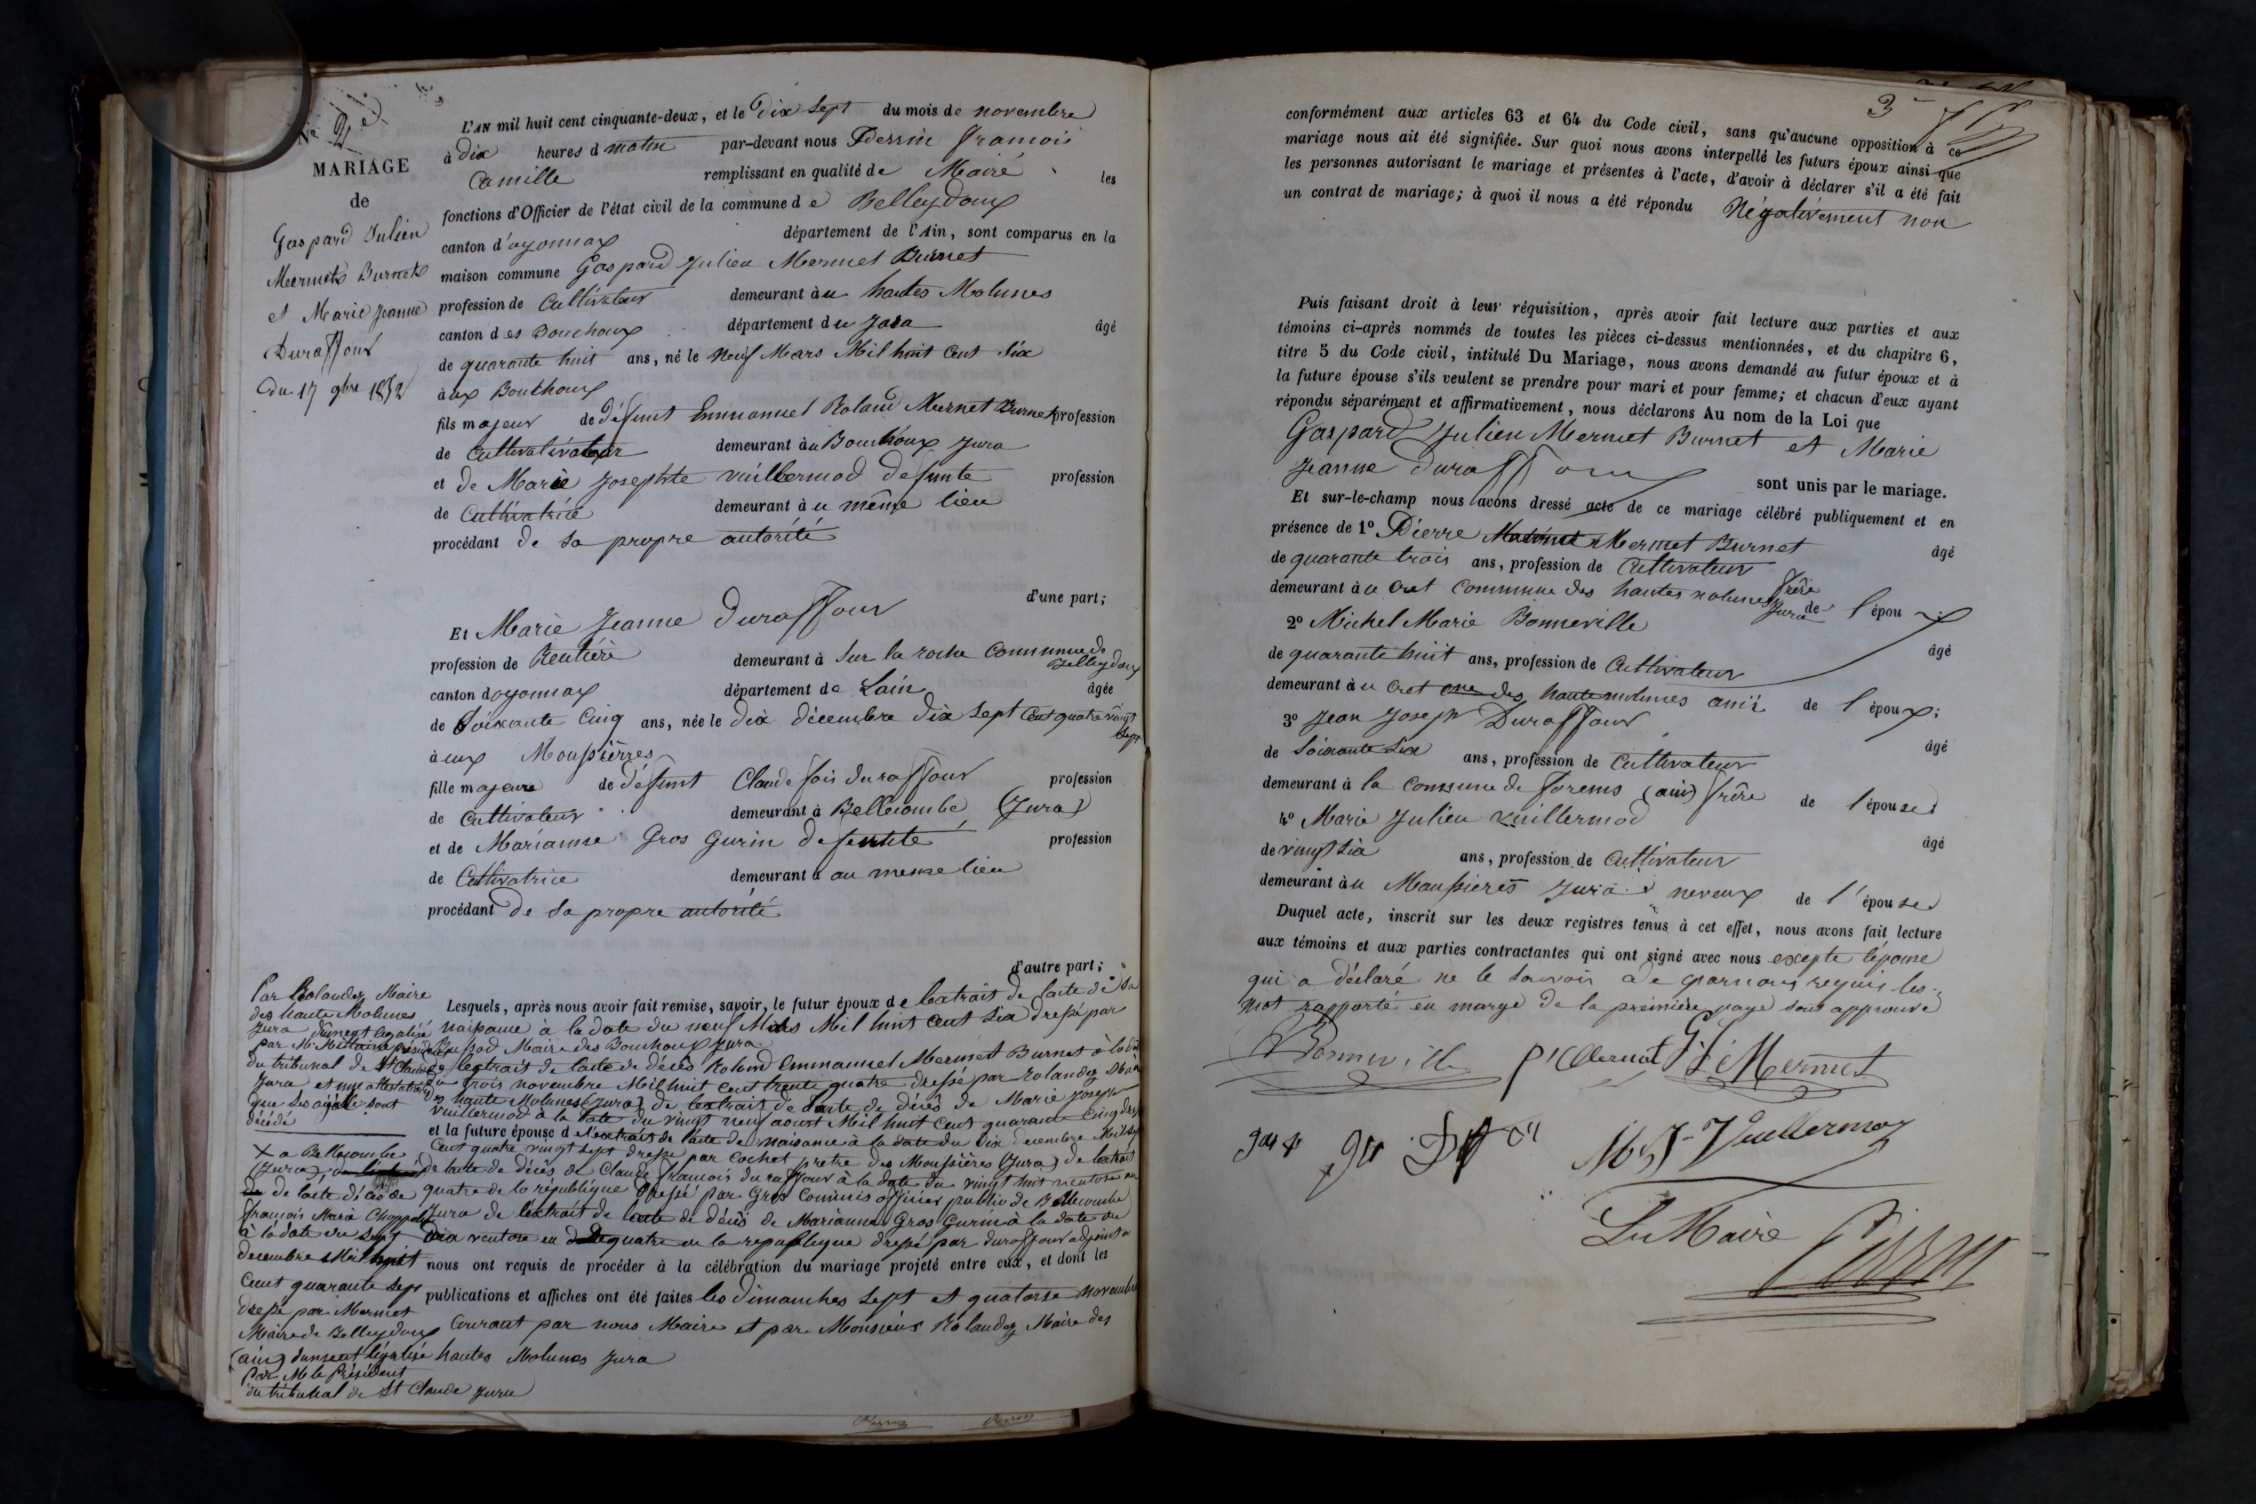 Nº 2e
MARIAGE
de
Gaspard Julien
Mermet Burnet
et Marie Jeanne
Duraffour
du 17 9bre 1852
L'AN mil huit cent cinquante-deux, et le Dix sept du mois de novembre
à Dix heures d matin par-devant nous Perrin François
Camille remplissant en qualité de Maire les
fonctions d'Officier de l'état civil de la commune d e Belleydoux
canton d'oyonnax département de l'Ain, sont comparus en la
maison commune Gaspard Julien Mermet Burnet
profession de Cultivateur demeurant à u hautes Molunes
canton d es Bouchoux département d u Jura âgé
de quarante huit ans, né le neuf Mars Mil huit Cent Six
à ux Bouthoux
fils majeur de défunt Emmanuel Roland Mermet Burnet profession
de Cultivativateur demeurant à u Bouchoux Jura
et de Marie Josephte vuillermod defunte profession
de Cultivatrice demeurant à u même lieu
procédant de sa propre autorité
d'une part;
Et Marie Jeanne Duraffour
profession de Rentière demeurant à Sur la roche Commune de Belleydoux
canton d oyonnax département de Lain âgée
de Soixante Cinq ans, née le dix décembre dix sept Cent quatre vingt sept
à ux Moussières
fille majeure de défunt Claude fois duraffour profession
de Cultivateur demeurant à Bellecombe (Jura)
et de Marianne Gros Gurin defunte profession
de Cultivatrice demeurant à au meme lieu
procédant de Sa propre autorité
d'autre part;
Lesquels, après nous avoir fait remise, savoir, le futur époux d e lextrait de lacte de sa
naissance à la date du neuf Mars Mil huit Cent Six dressé par
Maire des Bouchoux Jura
lextrait de lacte de décès Roland Emmanuel Mermet Burnet à la date
trois novembre Mil huit Cent trente quatre dressé par Rolandez Maire
haute Molunes (Jura) de lextrait de lacte de décès de Marie Joseph
vuillermod à la date du vingt neuf aoust Mil huit Cent quarante Cinq
et la future épouse d e l'extrait de lacte de naissance à la date du dix decembre Mil sept
Cent quatre vingt sept dressé par Cochet pretre des Moussières (Jura) de lextrait
de lacte de décès de Claude françois duraffour à la date du vingt huit ventose an
quatre de la république dressé par Gros Commis officier public de Bellecombe
Jura de lextrait de lacte de décès de Marianne Gros Gurin à la date du
dix ventose en quatre de la republique dressé par duraffour adjoint
nous ont requis de procéder à la célébration du mariage projeté entre eux, et dont les
publications et affiches ont été faites les dimanches Sept et quatorze novembre
Courant par nous Maire et par Monsieur Rolandez Maire des
hautes Molunes Jura
Par Rolandez Maire
des haute Molunes
Jura dument légalisé
par Mr président
du tribunal de St Claude
Jura et une attestation
que ses sont
décédé
X a Bellecombe
(Jura),
de lacte décès de
françois Marie
à la date du sept
decembre Mil huit
Cent quarante sept
dressé par Mermet
Maire de Belleydoux
(ain) dument légalisé
par M le Président
du tribunal de St Claude Jura
3
conformément aux articles 63 et 64 du Code civil, sans qu'aucune opposition à ce
mariage nous ait été signifiée. Sur quoi nous avons interpellé les futurs époux ainsi que
les personnes autorisant le mariage et présentes à l'acte, d'avoir à déclarer s'il a été fait
un contrat de mariage; à quoi il nous a été répondu Négativement non
Puis faisant droit à leur réquisition, après avoir fait lecture aux parties et aux
témoins ci-après nommés de toutes les pièces ci-dessus mentionnées, et du chapitre 6,
titre 5 du Code civil, intitulé Du Mariage, nous avons demandé au futur époux et à
la future épouse s'ils veulent se prendre pour mari et pour femme; et chacun d'eux ayant
répondu séparément et affirmativement, nous déclarons Au nom de la Loi que
Gaspard Julien Mermet Burnet et Marie
Jeanne Duraffour sont unis par le mariage.
Et sur-le-champ nous avons dressé acte de ce mariage célébré publiquement et en
présence de 1º Pierre Mermet Burnet âgé
de quarante trois ans, profession de Cultivateur
demeurant à u Cret Commune des hautes molunes Jura frère de l'époux
2º Michel Marie Bonneville âgé
de quarante huit ans, profession de Cultivateur
demeurant à u Cret cne des haute molunes ami de l'époux;
3º Jean Joseph Duraffour âgé
de Soixante Six ans, profession de Cultivateur
demeurant à la Commune de forens (ain) frère de l'épouse;
4º Marie Julien vuillermod âgé
de vingt Six ans, profession de Cultivateur
demeurant à u Moussieres Jura neveux de l'épouse
Duquel acte, inscrit sur les deux registres tenus à cet effet, nous avons fait lecture
aux témoins et aux parties contractantes qui ont signé avec nous excepte l'épouse
qui a déclaré ne le Savoir a de par nous requis les
mot rapporté en marge de la première page sont approuvé
Bonneville P Mermet G J Mermet
M J Vuillermoz
Le Maire
Perrin